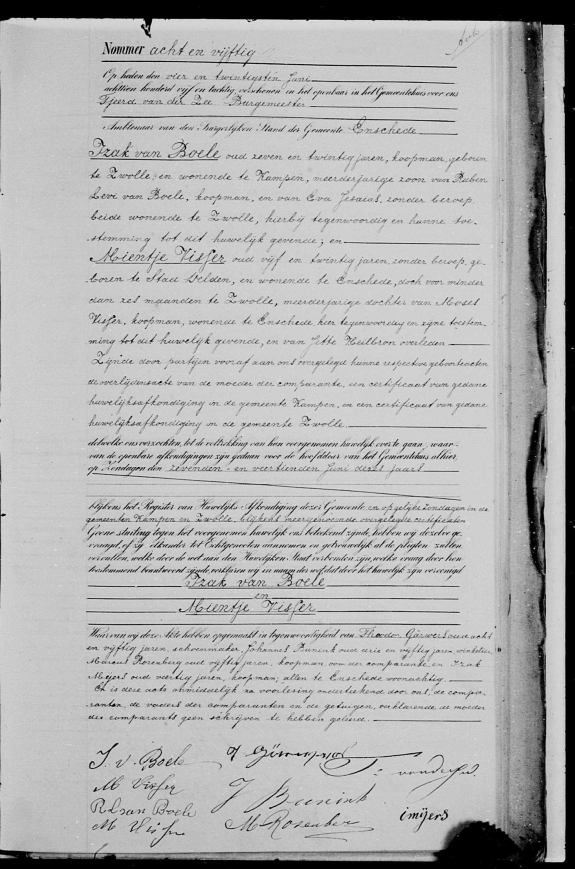 Nommer acht en vijftig
Op heden den vier en twintigsten Juni
achttien honderd vijf en tachtig, verschenen in het openbaar in het Gemeentehuis voor ons
Tjeerd van der Zee Burgemeester
Ambtenaar van den Burgerlijken Stand der Gemeente Enschede
Izak van Boele oud zeven en twintig jaren, koopman, geboren
te Zwolle en wonende te Kampen, meerderjarige zoon van Ruben
Levi van Boele, koopman, en van Eva Jesaias, zonder beroep
beide wonende te Zwolle, hierbij tegenwoordig en hunne toe-
stemming tot dit huwelijk gevende; en
Mientje Visser oud vijf en twintig jaren, zonder beroep, ge-
boren te Stad Delden, en wonende te Enschede, doch voor minder
dan zes maanden te Zwolle, meerderjarige dochter van Moses
Visser, koopman, wonende te Enschede hier tegenwoordig en zijne toestem-
ming tot dit huwelijk gevende, en van Jette Heilbron overleden
Zijnde door partijen vooraf aan ons overgelegd hunne respective geboorteacten
de overlijdensacte van de moeder der comparante, een certificaat van gedane
huwelijksafkondiging in de gemeente Kampen, en een certificaat van gedane
huwelijksafkondiging in de gemeente Zwolle
dewelke ons verzochten, tot de voltrekking van hun voorgenomen huwelijk over te gaan, waar-
van de openbare afkondigingen zijn gedaan voor de hoofddeur van het Gemeentehuis alhier
op Zondagen den zevenden en veertienden Juni dezes jaars
blijkens het Register van Huwelijks-Afkondiging dezer Gemeente en op gelijke zondagen in de
gemeenten Kampen en Zwolle, blijkens meergenoemde overgelegde certificaten
Geene stuiting tegen het voorgenomen huwelijk ons beteekend zijnde, hebben wij dezelve ge-
vraagd, of zij elkander tot Echtgenooten aannemen en getrouwelijk al de pligten zullen
vervullen, welke door de wet aan den Huwelijken Staat verbonden zijn, welke vraag door hen
toestemmend beantwoord zijnde, verklaren wij in naam der wet, dat door het huwelijk zijn vereenigd
Izak van Boele
en
Mientje Visser
Waarvan wij deze Akte hebben opgemaakt in tegenwoordigheid van Theodor Gärwers oud acht
en vijftig jaren, schoenmaker, Johannes Bunink oud dries en vijftig jaren, winkelier
Marcus Rosenberg oud vijftig jaren, koopman, oom der comparante en Izak
Meyers oud veertig jaren, koopman, allen te Enschede woonachtig
En is deze acte onmiddelijk na voorlezing onderteekend door ons, de compa-
ranten, de vaders der comparanten en de getuigen, verklarende de moeder
des comparants geen schrijven te hebben geleerd.
I. v. Boele
M Visser
R L van Boele
M Visser
J Bunink
M Rosenberg
imijers